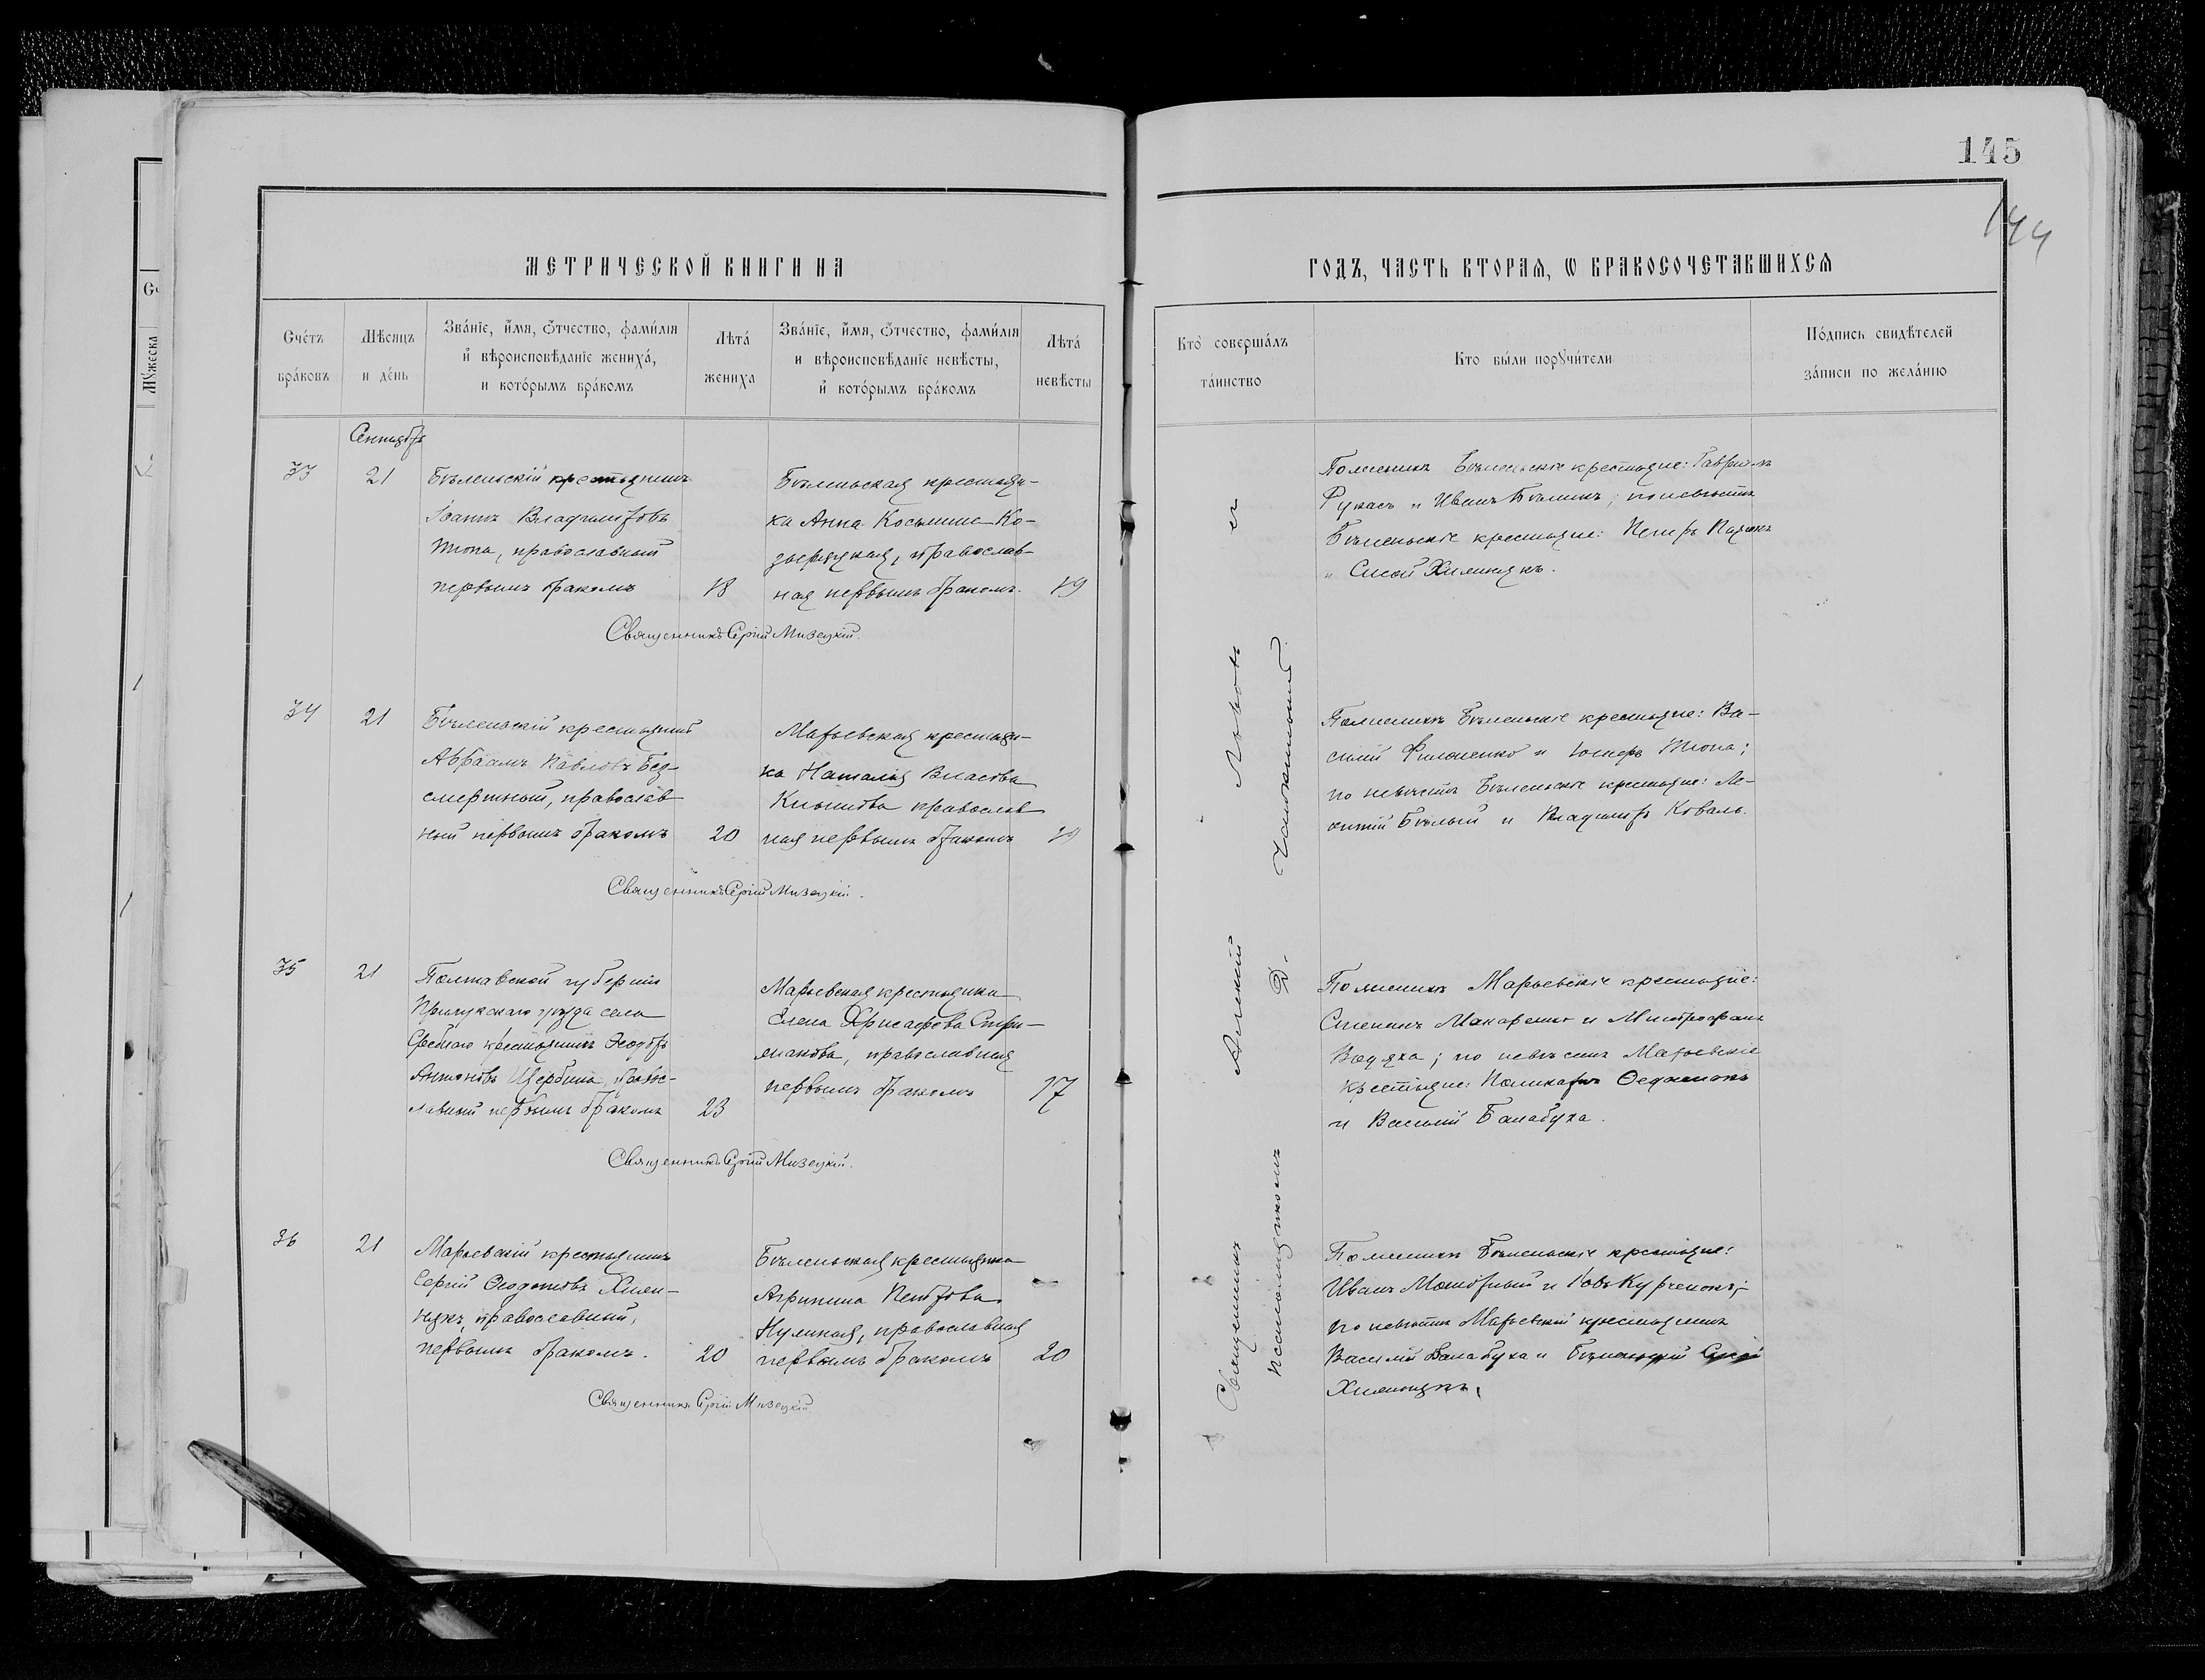 145
144
МЕТРИЧЕСКОЙ КНИГИ НА
ГОДЪ, ЧАСТЬ ВТОРАЯ, Ѡ БРАКОСОЧЕТАВШИХСЯ
Сче́тъ бра́ковъ
Мѣсяцъ и де́нь
Зва́нїе, и҆́мя, ѻ҆́тчество, фами́лїя
и҆ вѣроисповѣ́данїе жениха́,
и кото́рымъ бра́комъ
Лѣта́ жениха
Зва́нїе, и҆́мя, ѻ҆́тчество, фами́лїя
и вѣроисповѣ́данїе невѣ́сты,
и҆ кото́рымъ бра́комъ
Лѣта́ невѣ́сты
Кто̀ соверша́лъ
та́инство
Кто бы́ли порꙋчи́тели
По́дпись свидѣ́телей
за́писи по жела́нїю
Мꙋжеска
Сентябрь
33
21
Бѣленьскій крестьянинъ
Іоаннъ Владиміровъ
Тюпа, православный
первымъ бракомъ
18
Бѣленьская крестьян-
ка Анна Косьмина Ко-
зырицкая, православ-
ная первымъ бракомъ.
19
По женихѣ Бѣленьскіе крестьяне: Гавріилъ
и Иванъ Бѣлинъ; по невѣстѣ
Бѣленьскіе крестьяне: Петръ
и Сисой Хименякъ.
Священникъ Сергій Мизецкій.
34
21
Бѣленьскій крестьянинъ
Авраамъ Павловъ Без-
смертный, православ
ный первымъ бракомъ
20
Марьевская крестьян-
ка Наталія Власова
православ
ная первымъ бракомъ
19
По женихѣ Бѣленьскіе крестьяне: Ва-
силій Филоненко и Тюпа;
по невѣстѣ Бѣленьскіе крестьяне: Ле-
онтій Бѣлый и Владиміръ Коваль.
Священникъ Сергій Мизецкій.
35
21
Полтавской губерніи
Прилукскаго уѣзда села
Сребнаго крестьянинъ Ѳеодоръ
Антоновъ Щербина, правос-
лавный первымъ бракомъ
23
Марьевская крестьянка
Елена Хрисанфова Стри-
жакова, православная
первымъ бракомъ
17
По женихѣ Марьевскіе крестьяне:
Стефанъ Макаренко и Митрофанъ
Водяха; по невѣстѣ Марьевскіе
крестьяне: Поликарпъ
и Василій Балабуха.
Священникъ Сергій Мизецкій.
36
21
Марьевскій крестьянинъ
Сергій Ѳеодотовъ Химе-
някъ, православный,
первымъ бракомъ.
20
Бѣленьская крестьянка
Агрипина Петрова
Нужная, православная
первымъ бракомъ
20
По женихѣ Бѣленьскіе крестьяне:
Иванъ Моторный и Іовъ Курченокъ;
по невѣстѣ Марьевскій крестьянинъ
Василій Балабуха и Бѣленьскій Сисой
Хименякъ.
Священникъ Сергій Мизецкій.
Священникъ Алексій Львовъ и
Псаломщикомъ Д.